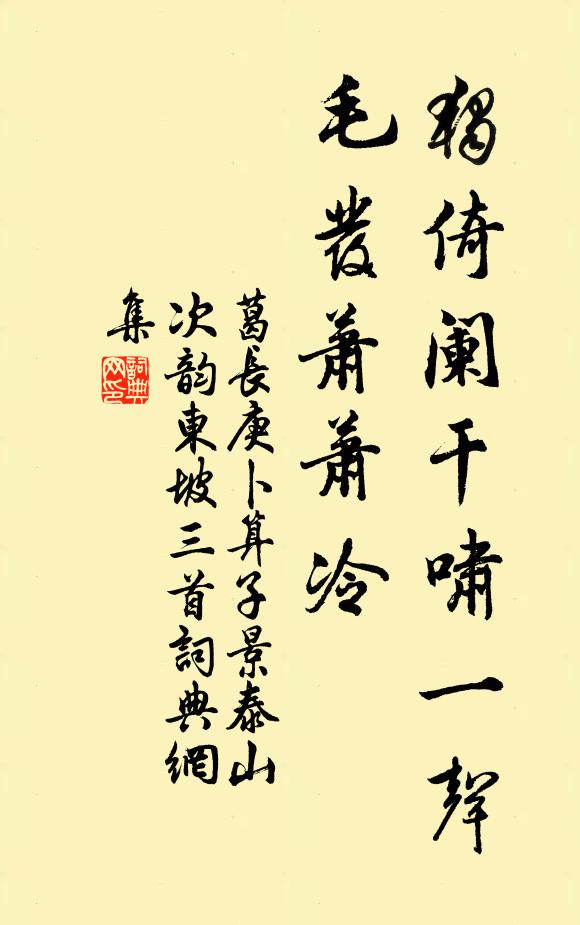 獨倚闌干嘯一聲
毛發蕭蕭冷
葛長庚卜算子景泰山
次韵東坡三首詞典網
集
詞典網印